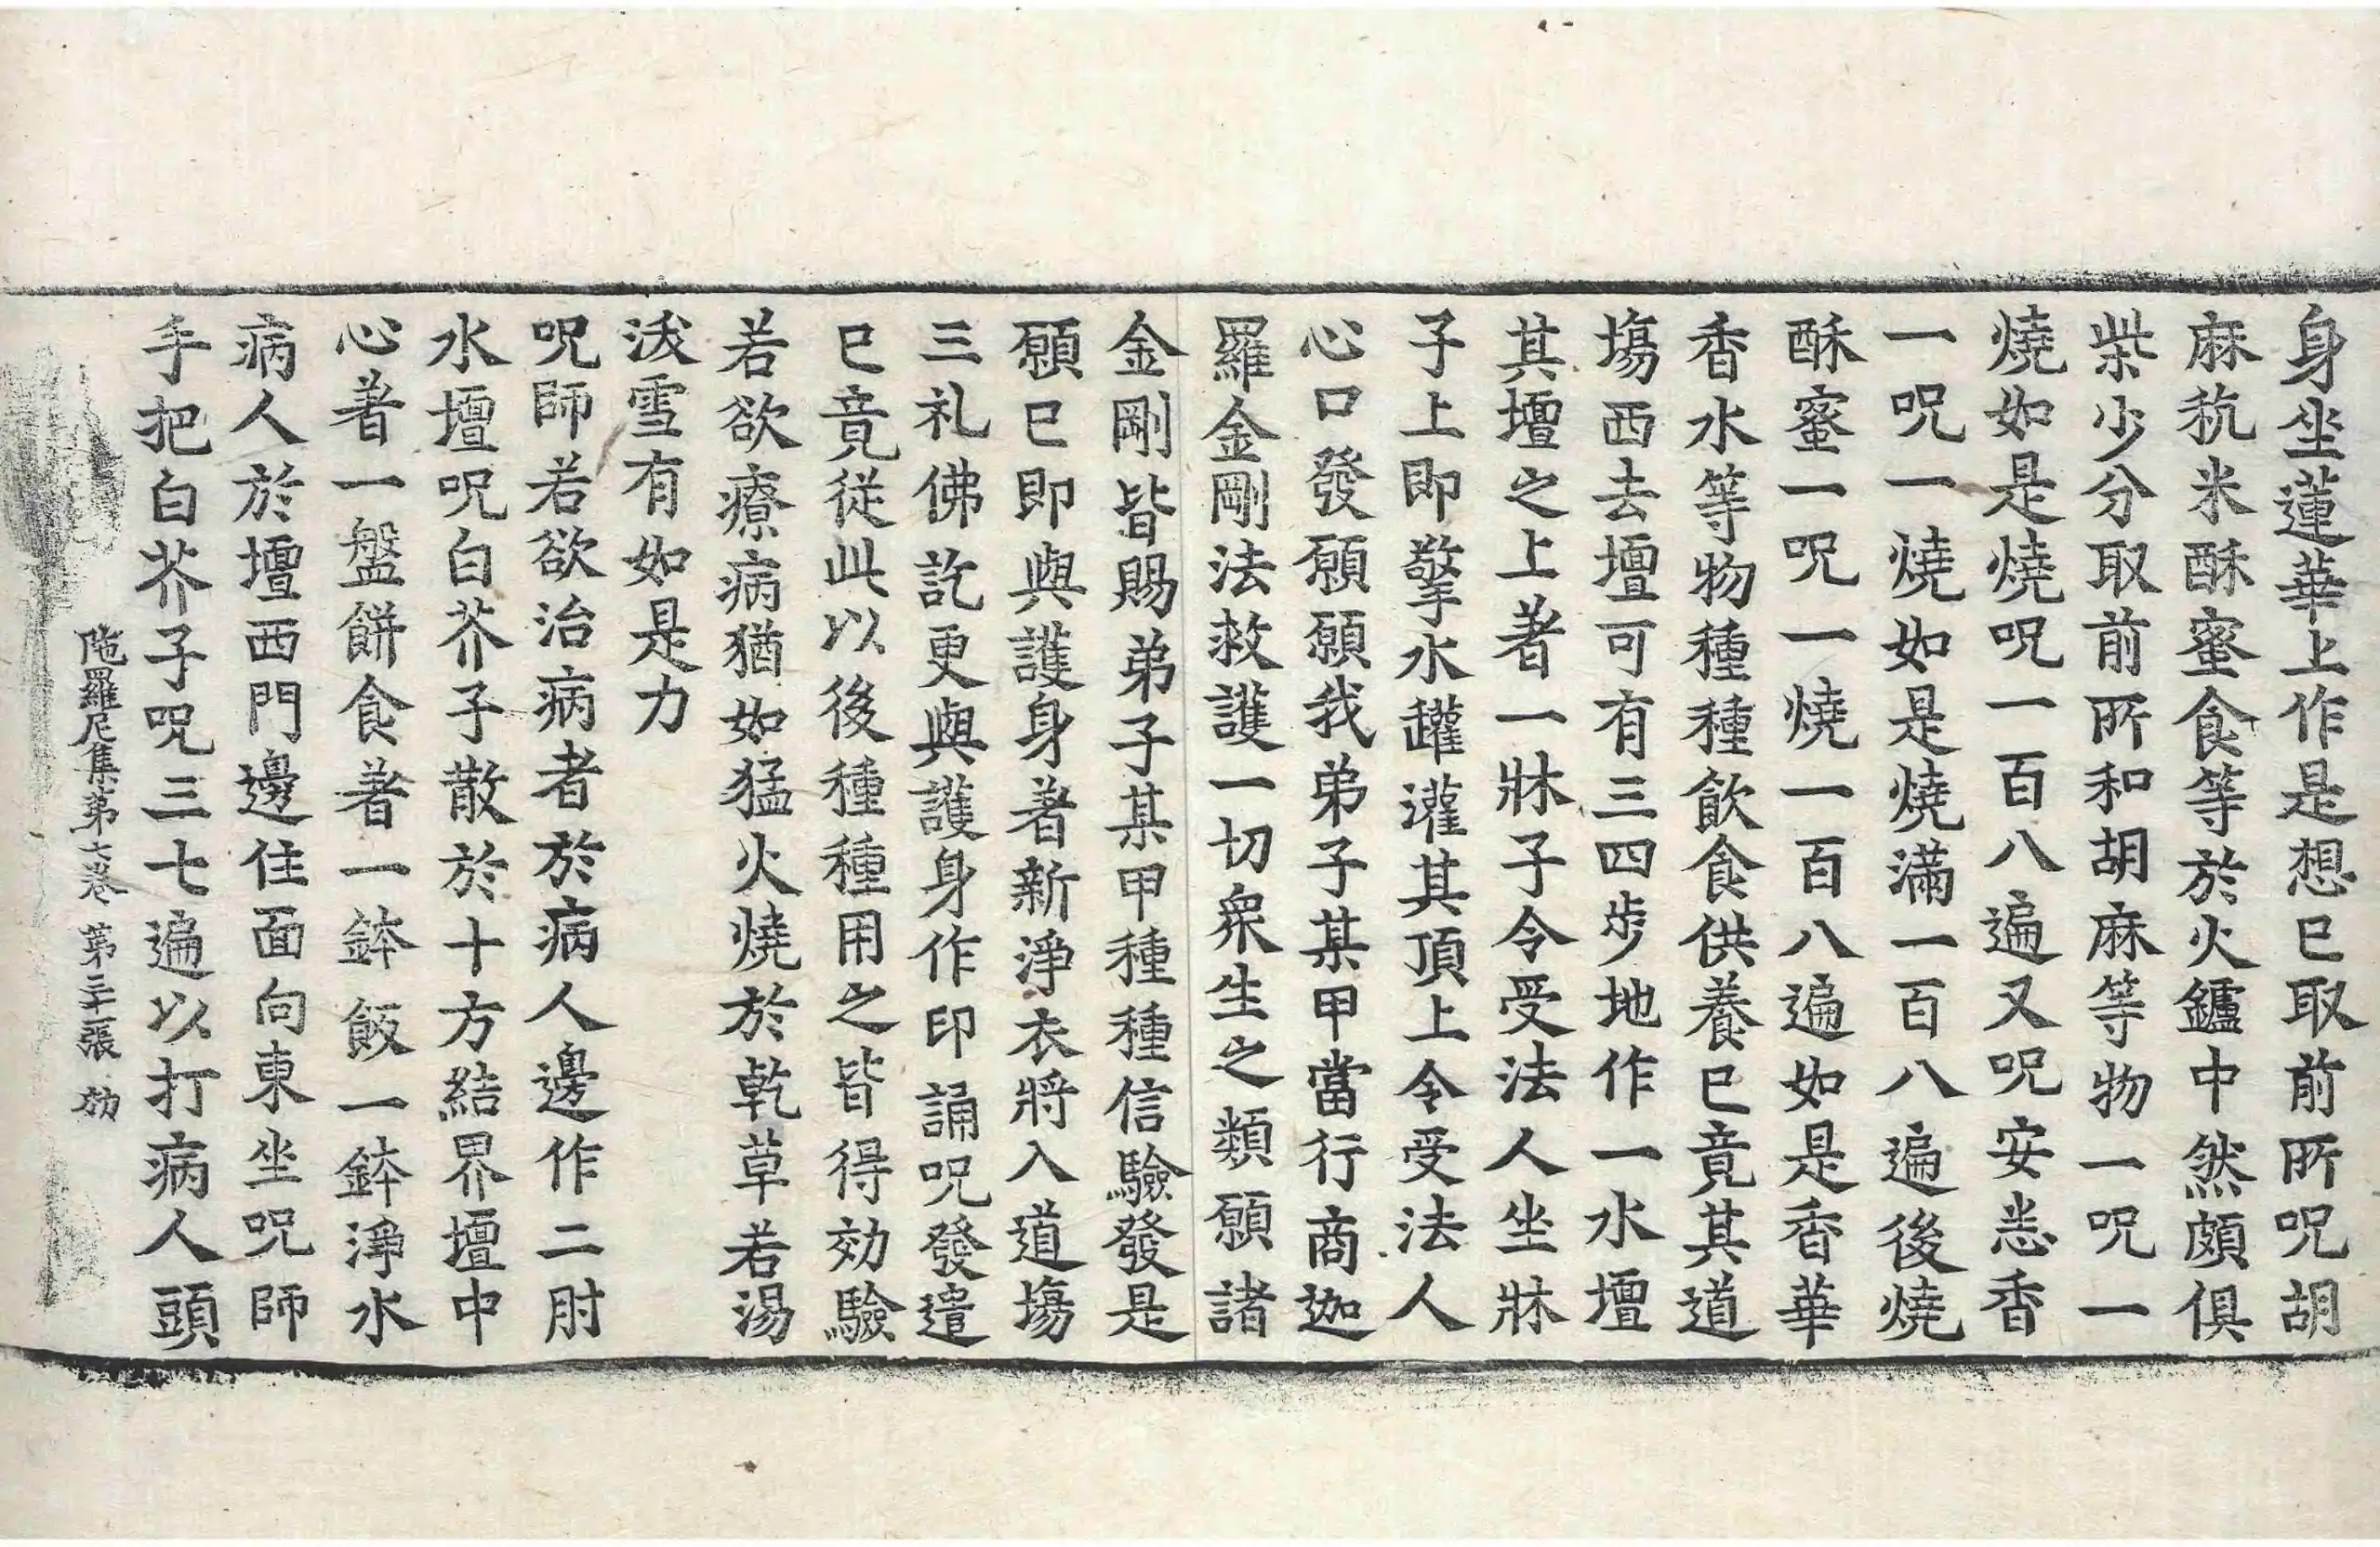 身坐蓮華上作是想已取前所呪胡
麻秔米酥蜜食等於火鑪中然頗俱
柴少分取前所和胡麻等物一呪一
燒如是燒呪一百八遍又呪安悉香
一呪一燒如是燒滿一百八遍後燒
酥蜜一呪一燒一百八遍如是香華
香水等物種種飲食供養已竟其道
塲西去壇可有三四步地作一水壇
其壇之上著一牀子令受法人坐牀
子上即擎水罐灌其頂上令受法人
心口發願願我弟子某甲當行商迦
羅金剛法救護一切衆生之類願諸
金剛皆賜弟子某甲種種信驗發是
願已即與護身著新淨衣將入道塲
三礼佛訖更與護身作印誦呪發遣
已竟從此以後種種用之皆得効驗
若欲療病猶如猛火燒於乾草若湯
沃雪有如是力
呪師若欲治病者於病人邊作二肘
水壇呪白芥子散於十方結界壇中
心著一盤餅食著一鉢飯一鉢淨水
病人於壇西門邊住面向東坐呪師
手把白芥子呪三七遍以打病人頭
陁羅尼集第卷 第張